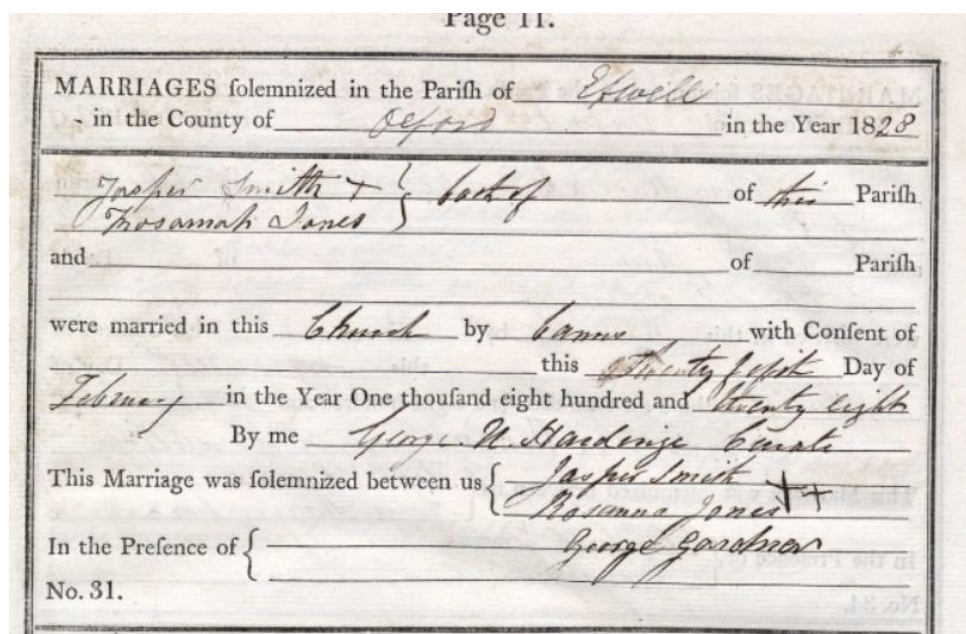 Page 11.
MARRIAGES ſolemnized in the Pariſh of Ewell
in the County of Oxford in the Year 1828
Jasper Smith + } both of of this Pariſh
Rosannah Jones
and of Pariſh
were married in this Church by Banns with Conſent of
this Twenty Day of
February in the Year One thouſand eight hundred and twenty eight
By me George N Hardinge Curate
This Marriage was ſolemnized between us { Jasper Smith
Rosanna Jones ++
In the Preſence of { George Gardner
No. 31.